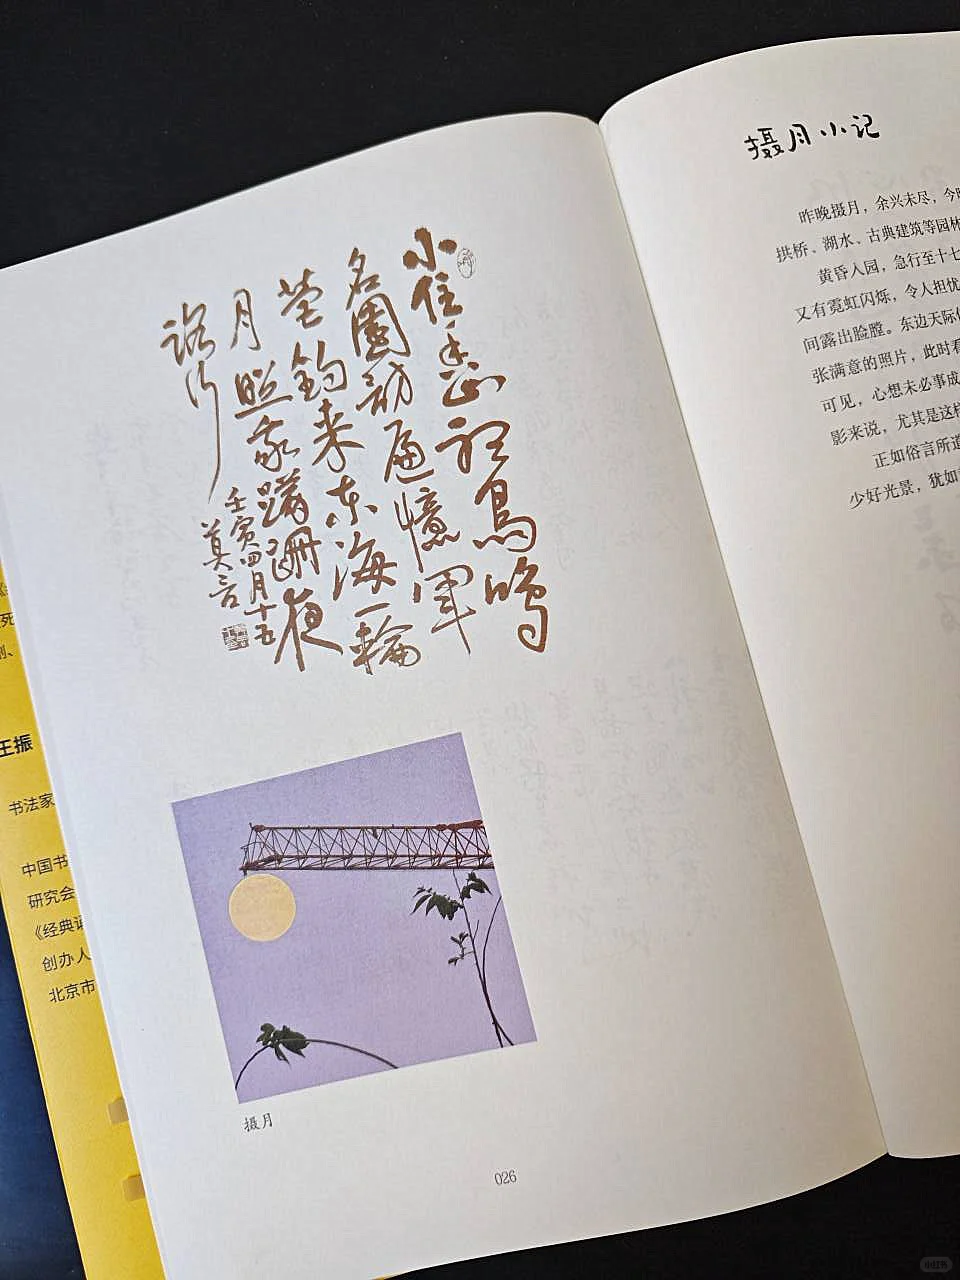 小住香山聽鳥鳴
名園訪遍憶軍
營釣来东海一輪
月照我蹒跚夜
路行
壬寅四月十五
莫言
摄月
026
摄月小记
昨晚摄月，余兴未尽，今
拱桥、湖水、古典建筑等园林
黄昏入园，急行至十七
又有霓虹闪烁，令人担忧
间露出脸膛。东边天际
张满意的照片，此时看
可见，心想未必事成
影来说，尤其是这样
正如俗言所道
少好光景，犹如
王振
书法家
中国书
研究会
《经典诵
创办人
北京市